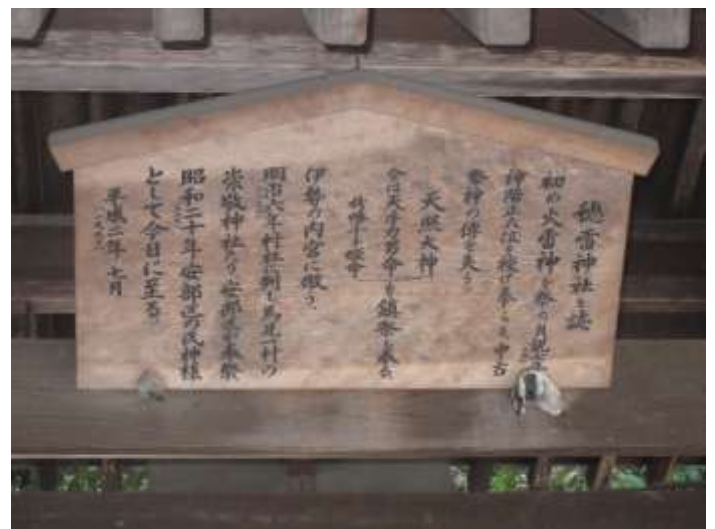 穂雷神社を誌
初め火雷神を祭り
神階正六位を授け奉 中古
祭神の傳を失う
天照大神
今は天手力男命を鎮祭し奉る
伊勢の内宮に倣う
明治六年村社に列し馬見一村の
崇敬神社となり安部区が奉祭
昭和二十年安部区の氏神様
として今日に至る
平成二年七月